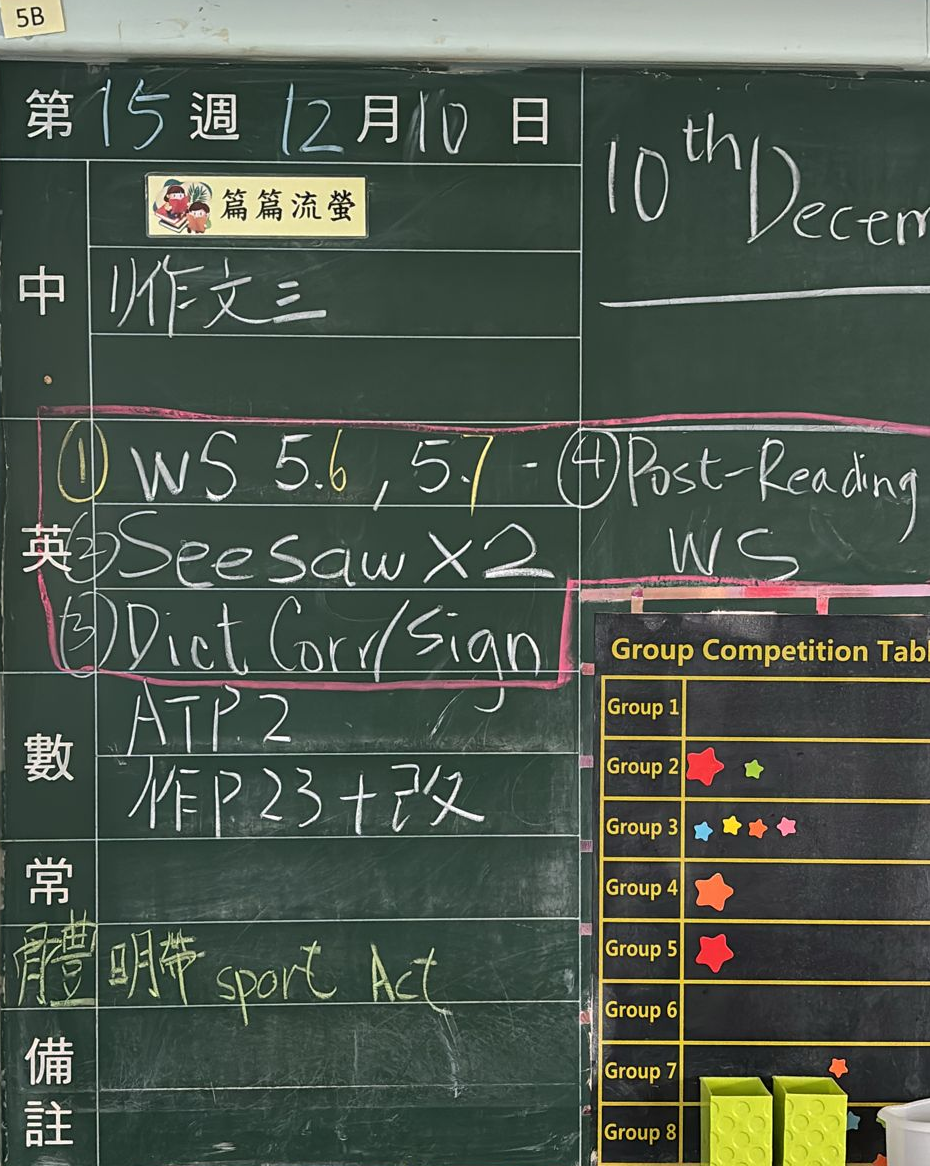 5B
第 15 週 12 月 10 日
10th Decem
篇篇流螢
中
1)作文三
英
① WS 5.6 , 5.7 -
② Seesaw X2
③ Dict Corr/Sign
④ Post-Reading
WS
數
ATP.2
作P23+改
常
體 明帶 sport Act
備
註
Group Competition Tabl
Group 1
Group 2
Group 3
Group 4
Group 5
Group 6
Group 7
Group 8